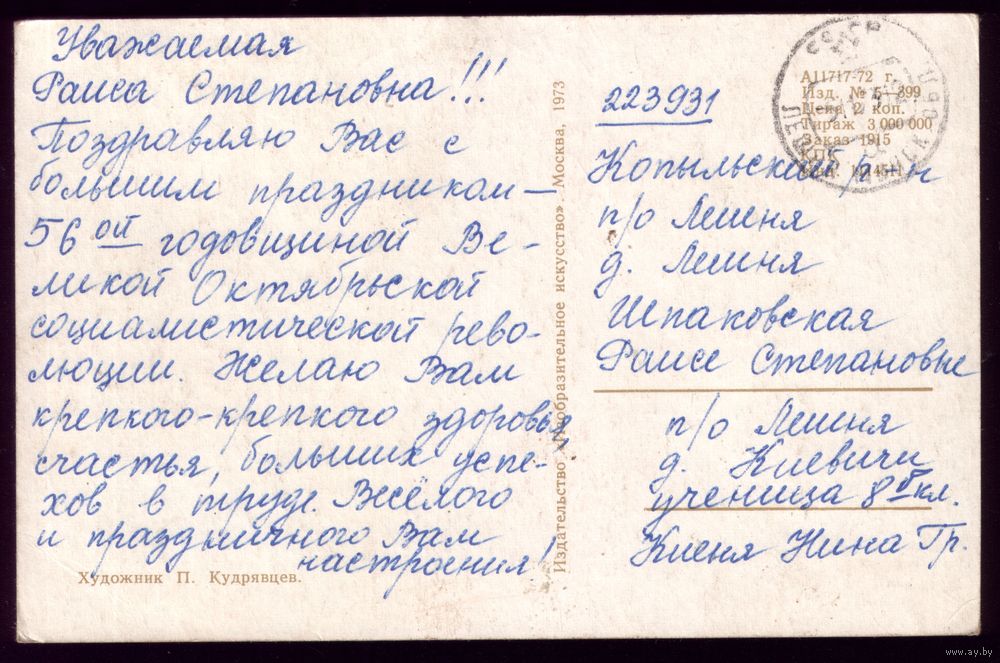 Уважаемая
Раиса Степановна!!!
Поздравляю Вас с
большим праздником –
56ой годовщиной Ве-
ликой Октябрьской
социалистической рево-
люции. Желаю Вам
крепкого-крепкого здоровья
счастья, больших успе-
хов в труде. Весёлого
и праздничного Вам
настроения!
Художник П. Кудрявцев.
Издательство «Изобразительное искусство». Москва, 1973
А11717-72 г.
Изд. № 5-399
Цена 2 коп.
Тираж 3 000 000
Заказ 1915
223931
Копыльский р-н
п/о Лешня
д. Лешня
Шпаковская
Раисе Степановне
п/о Лешня
д. Киевичи
ученица 8 кл.
Киеня Нина Гр.
www.ay.by